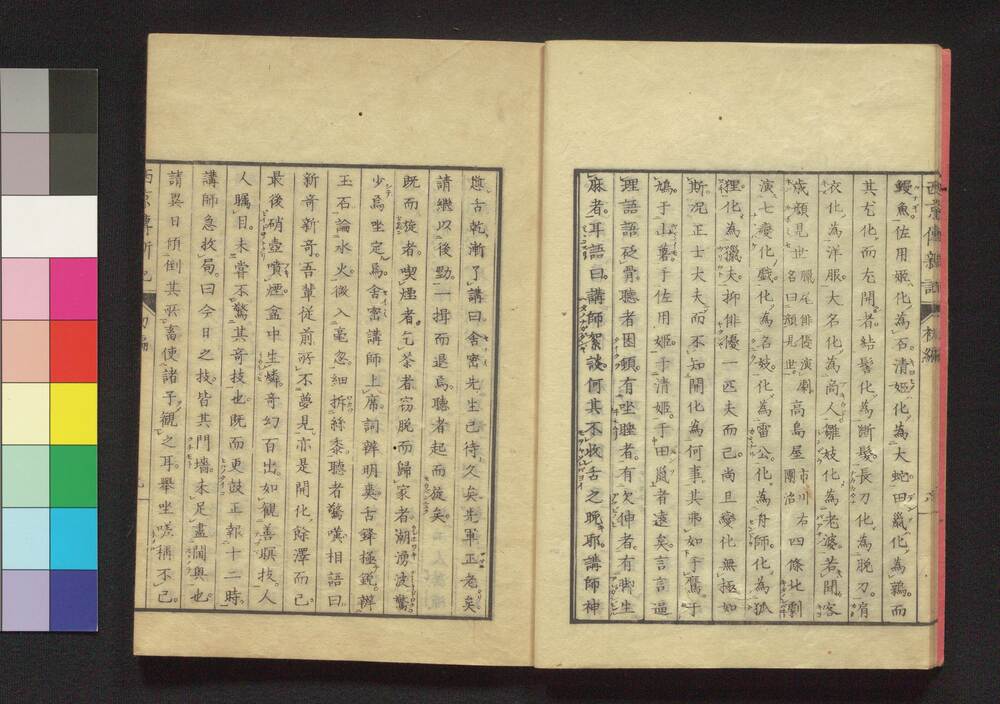 鰻魚佐用姬化為石清姬化為大蛇田鼠化為鶉而
其尤化而左開者結髻化為斷髮長刀化為脫刀肩
衣化為洋服大名化為商人雛妓化為老婆若開客
歲顏見世臘尾俳優演劇名曰顏見世高島屋市川右團治四條北劇
演七變化戲化為名妓化為雷公化為舟師化為狐
狸化為獵夫抑俳優一匹夫而已尚且變化無極如
斯況正士大夫而不知開化為何事其弗如于鶩于
鳩于山薯于佐用姬于清姬于田鼠者遠矣言言逼
理語語砭骨聽者困頓有坐睡者有欠伸者有脚生
麻者耳語曰講師絮談何其不收舌之晚耶講師神
舌乾漸了講曰舍密先生已待久矣先軍正老矣
請繼以後勁一揖而退焉聽者起而旋矣
既而旋者喫煙者乞茶者窃脫而歸家者潮湧波驚
少焉坐定焉舍密講師上席詞辨明爽舌鋒極銳辨
玉石論水火微入毫忽細拆絲黍聽者驚嘆相語曰
新奇新奇吾輩從前所不夢見亦是開化餘澤而已
最後硝壺噴煙盒中生燐奇幻百出如觀善暝技人
人矚目未嘗不驚其奇技也既而更鼓正報十二時
講師急收局曰今日之技皆其門墻未足盡闡奧也
請異日傾倒其所畜使諸子觀之耳舉坐嗟稱不已